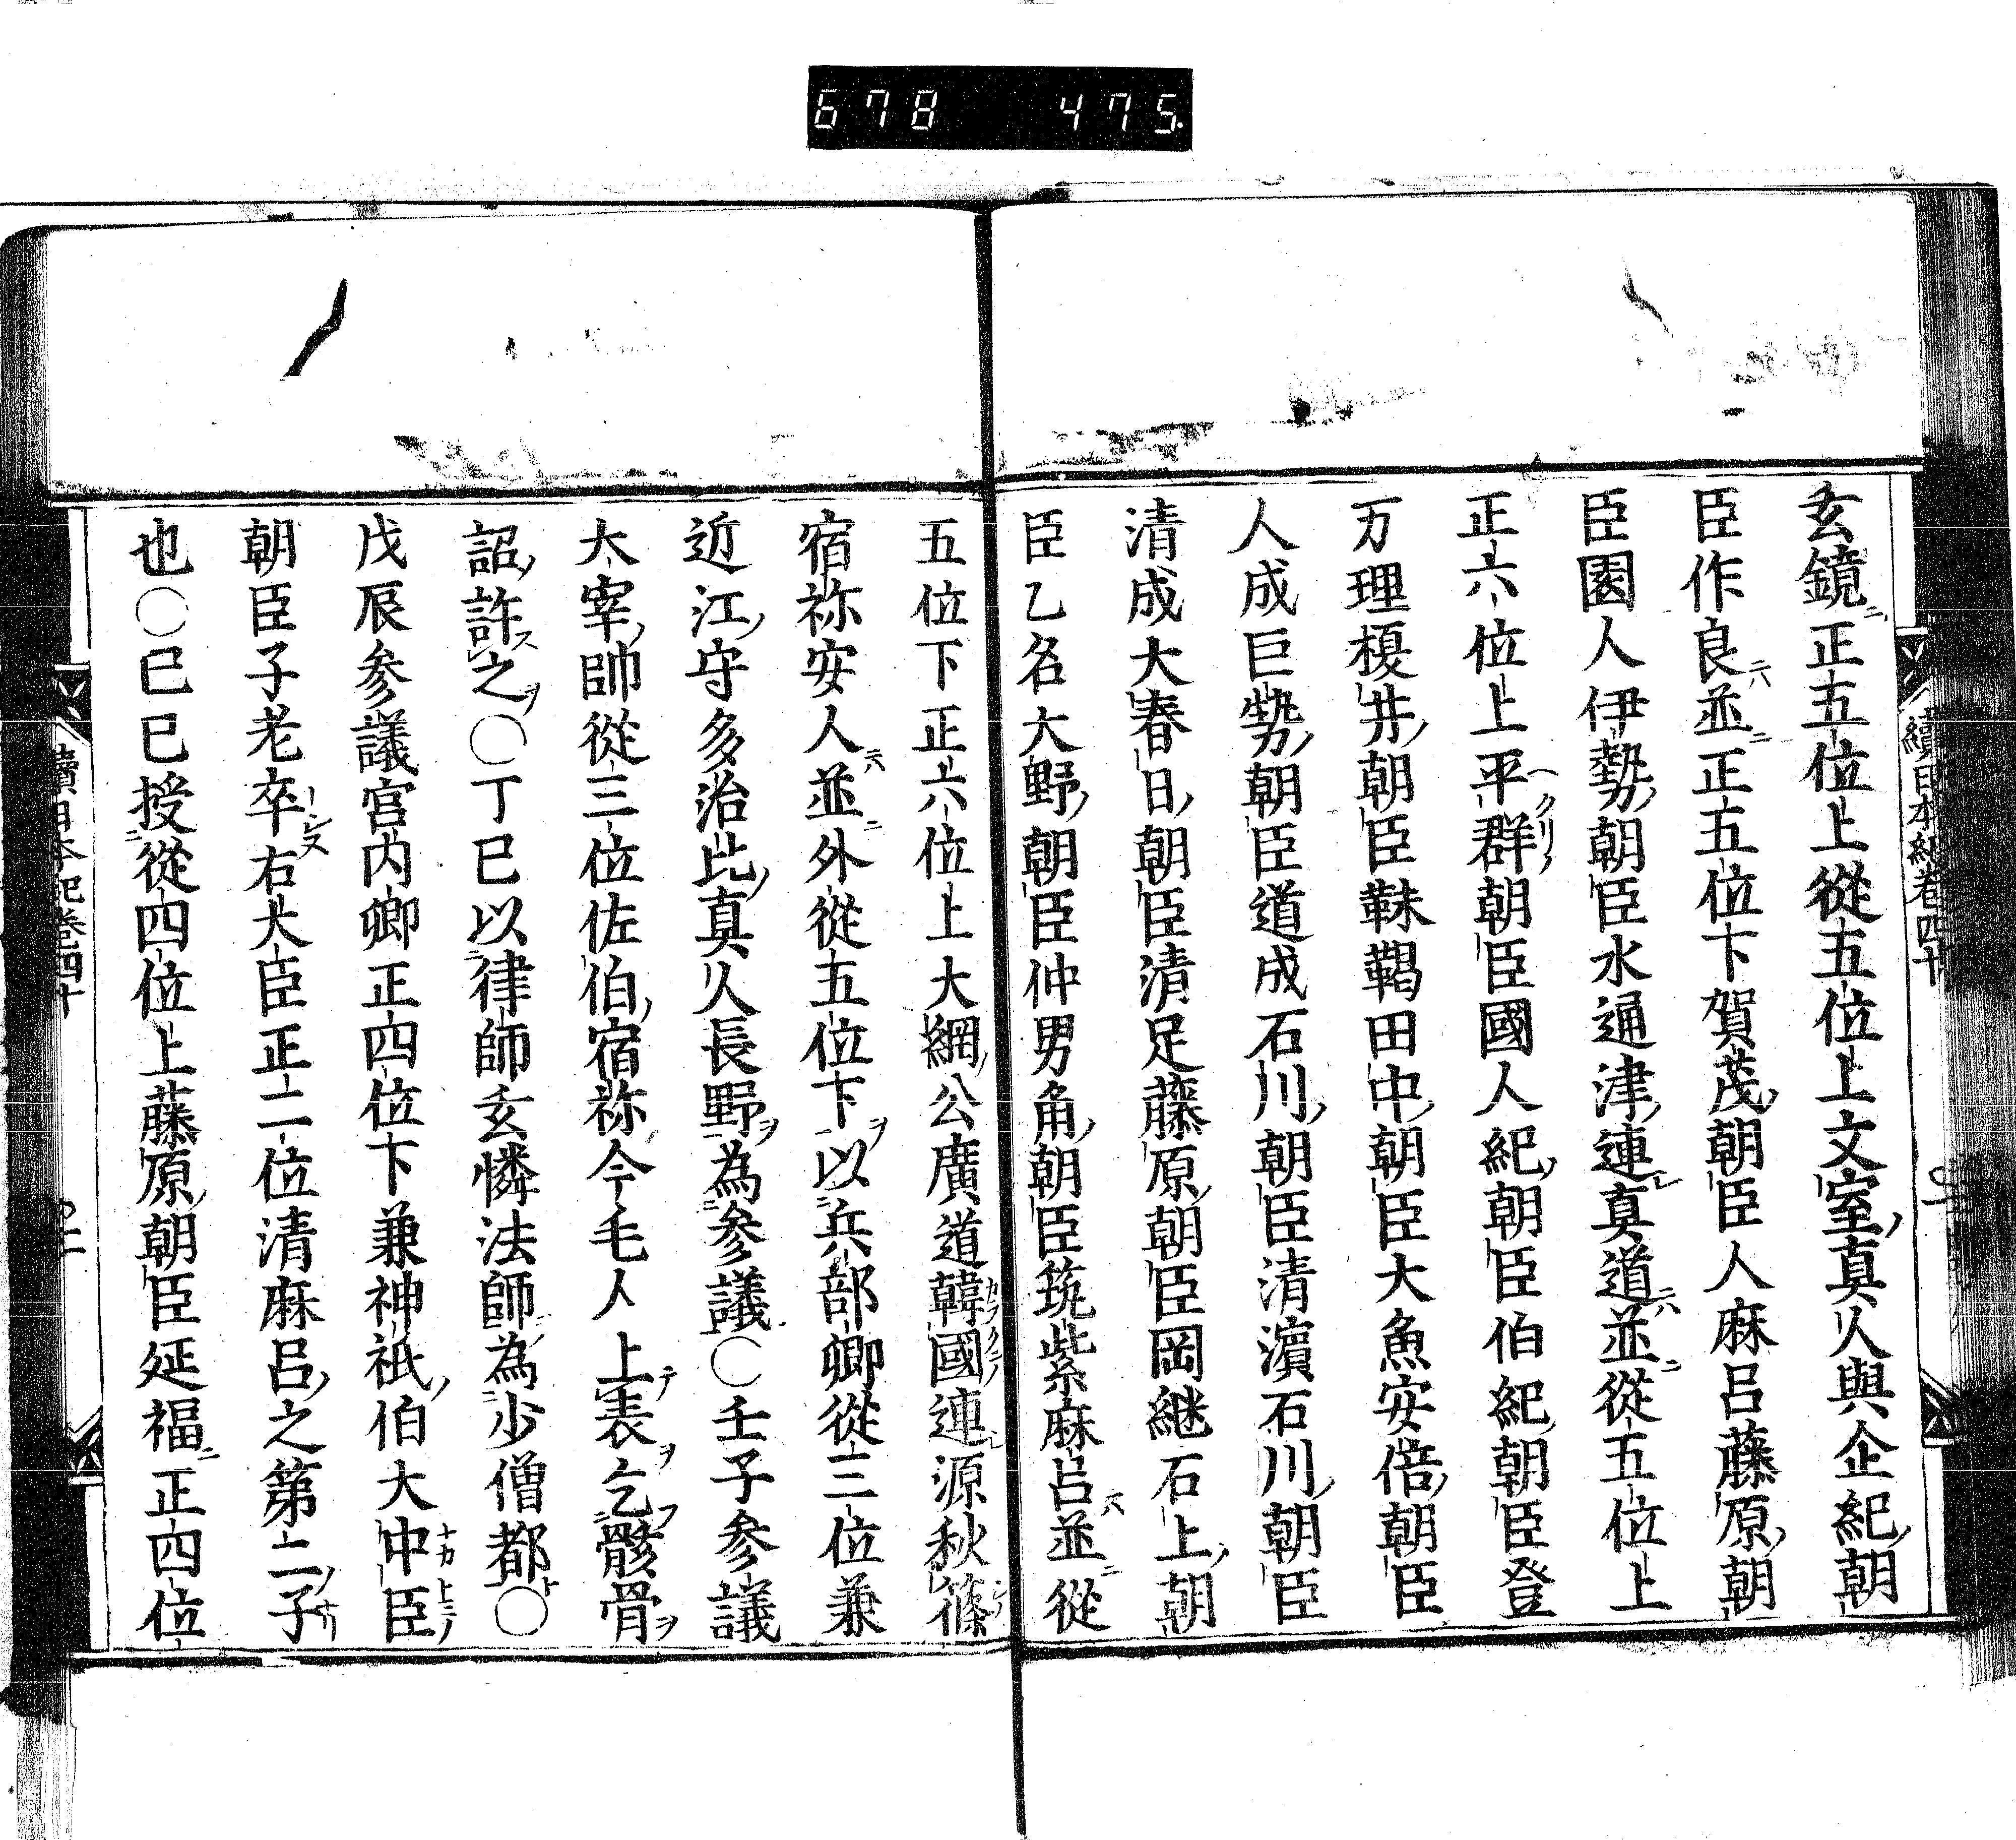 678 475
玄鏡正五位上從五位上文室真人與企紀朝
臣作良並正五位下賀茂朝臣人麻呂藤原朝
臣園人伊勢朝臣水通津連真道並從五位上
正六位上平群朝臣國人紀朝臣伯紀朝臣登
万理榎井朝臣靺鞨田中朝臣大魚安倍朝臣
人成巨勢朝臣道成石川朝臣清濱石川朝臣
清成大春日朝臣清足藤原朝臣岡継石上朝
臣乙名大野朝臣仲男角朝臣筑紫麻呂並從
五位下正六位上大網公廣道韓國連源秋篠
宿祢安人並外從五位下以兵部卿從三位兼
近江守多治比真人長野為参議〇壬子参議
大宰帥從三位佐伯宿祢今毛人上表乞骸骨
詔許之〇丁巳以律師玄憐法師為少僧都〇
戊辰参議宮内卿正四位下兼神祇伯大中臣
朝臣子老卒右大臣正二位清麻呂之第二子
也〇己巳授從四位上藤原朝臣延福正四位
續日本紀卷四十